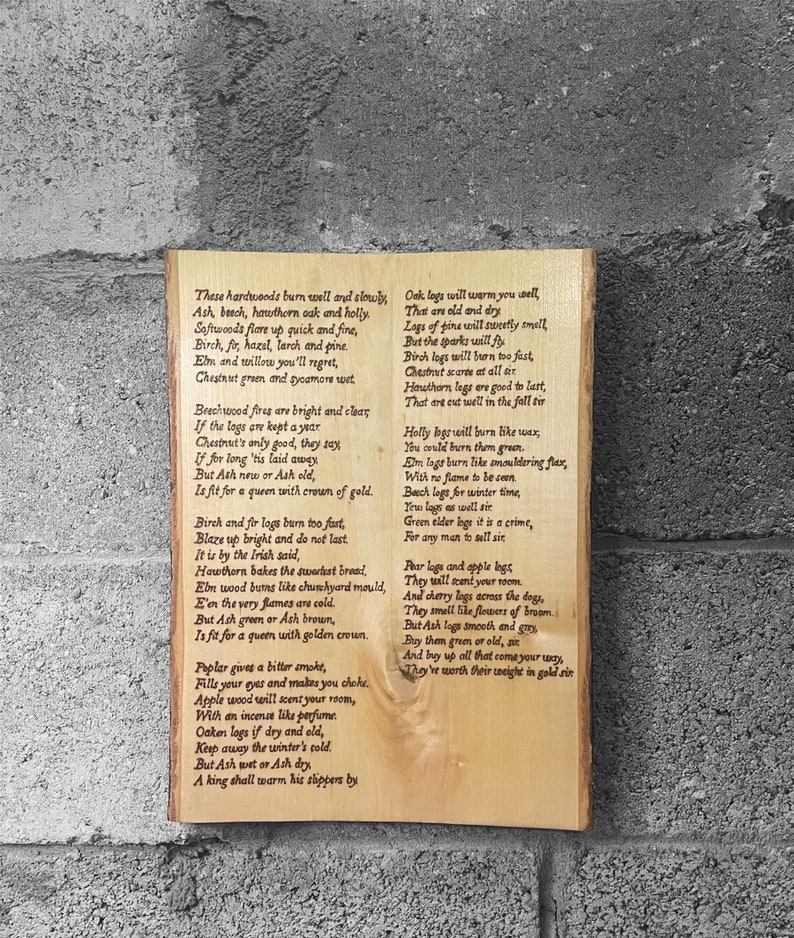 These hardwoods burn well and slowly,
Ash, beech, hawthorn oak and holly.
Softwoods flare up quick and fine,
Birch, fir, hazel, larch and pine.
Elm and willow you'll regret,
Chestnut green and sycamore wet.

Beechwood fires are bright and clear,
If the logs are kept a year.
Chestnut's only good, they say,
If for long 'tis laid away.
But Ash new or Ash old,
Is fit for a queen with crown of gold.

Birch and fir logs burn too fast,
Blaze up bright and do not last.
It is by the Irish said,
Hawthorn bakes the sweetest bread,
Elm wood burns like churchyard mould,
E'en the very flames are cold.
But Ash green or Ash brown,
Is fit for a queen with golden crown.

Poplar gives a bitter smoke,
Fills your eyes and makes you choke.
Apple wood will scent your room,
With an incense like perfume.
Oaken logs if dry and old,
Keep away the winter's cold.
But Ash wet or Ash dry,
A king shall warm his slippers by.

Oak logs will warm you well,
That are old and dry.
Logs of pine will sweetly smell,
But the sparks will fly.
Birch logs will burn too fast,
Chestnut scarce at all sir.
Hawthorn logs are good to last,
That are cut well in the fall sir

Holly logs will burn like wax,
You could burn them green.
Elm logs burn like smouldering flax,
With no flame to be seen.
Beech logs for winter time,
Yew logs as well sir.
Green elder logs it is a crime,
For any man to sell sir.

Pear logs and apple logs,
They will scent your room.
And cherry logs across the dogs,
They smell like flowers of broom.
But Ash logs smooth and grey,
Buy them green or old, sir.
And buy up all that come your way,
They're worth their weight in gold sir.